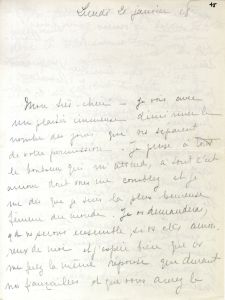 Lundi 21 janvier 18
Mon très chéri - je vous avoue
un plaisir immense diminuer le
nombre des jours que vous séparent
de votre permission. - Je pense à tout
le bonheur qui m'attend, à tout cet
amour dont vous me comblez et je
me dis que je suis la plus heureuse
femme du monde. Je vous demanderai
qd ns serons ensemble si vs êtes amou-
reux de moi et j'espère bien que vs
me ferez la même réponse que durant
nos fiançailles et que vous aurez le